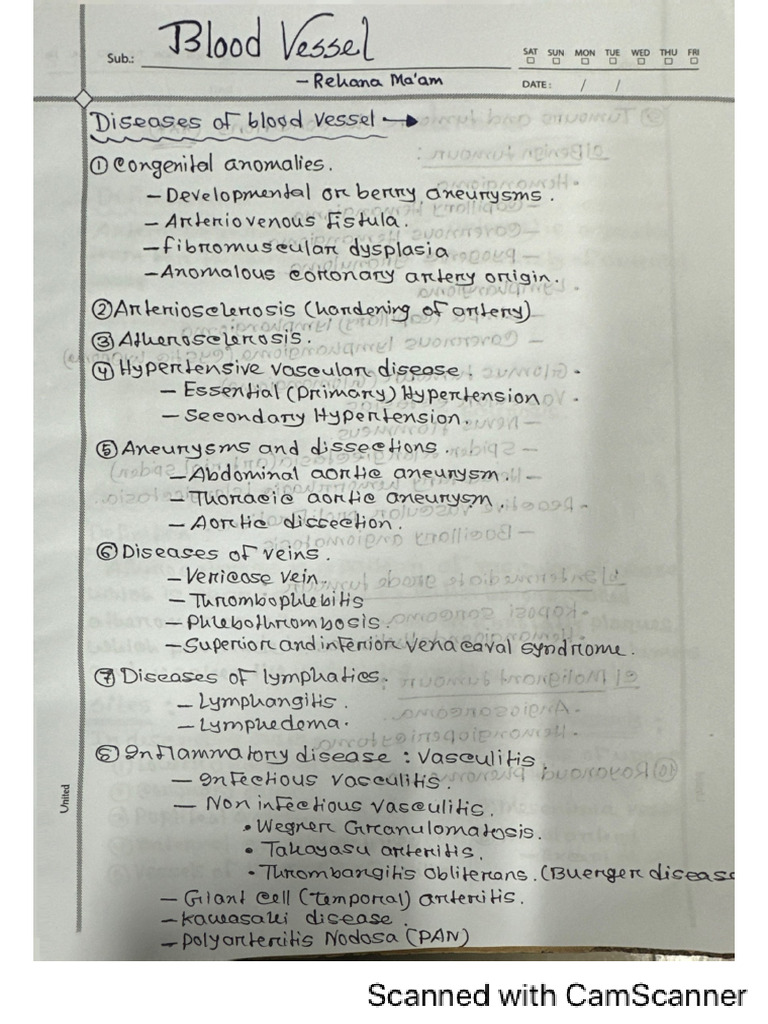 Sub.: Blood Vessel
SAT SUN MON TUE WED THU FRI
– Rehana Ma'am
DATE: / /
Diseases of blood vessel →
① Congenital anomalies.
– Developmental or berry aneurysms.
– Arteriovenous fistula.
– fibromuscular dysplasia
– Anomalous coronary artery origin.
② Arteriosclerosis (hardening of artery)
③ Atherosclerosis.
④ Hypertensive vascular disease.
– Essential (Primary) Hypertension
– Secondary Hypertension.
⑤ Aneurysms and dissections.
– Abdominal aortic aneurysm.
– Thoracic aortic aneurysm.
– Aortic dissection.
⑥ Diseases of veins.
– Vericose vein.
– Thrombophlebitis
– Phlebothrombosis.
– Superior and inferior vena caval syndrome.
⑦ Diseases of lymphatics.
– Lymphangitis.
– Lymphedema.
⑧ Inflammatory disease : Vasculitis.
– Infectious vasculitis.
– Non infectious vasculitis.
• Wegner Granulomatosis.
• Takayasu arteritis.
• Thrombangitis obliterans. (Buerger disease
– Giant cell (temporal) arteritis.
– Kawasaki disease.
– Polyarteritis Nodosa (PAN)
United
Scanned with CamScanner